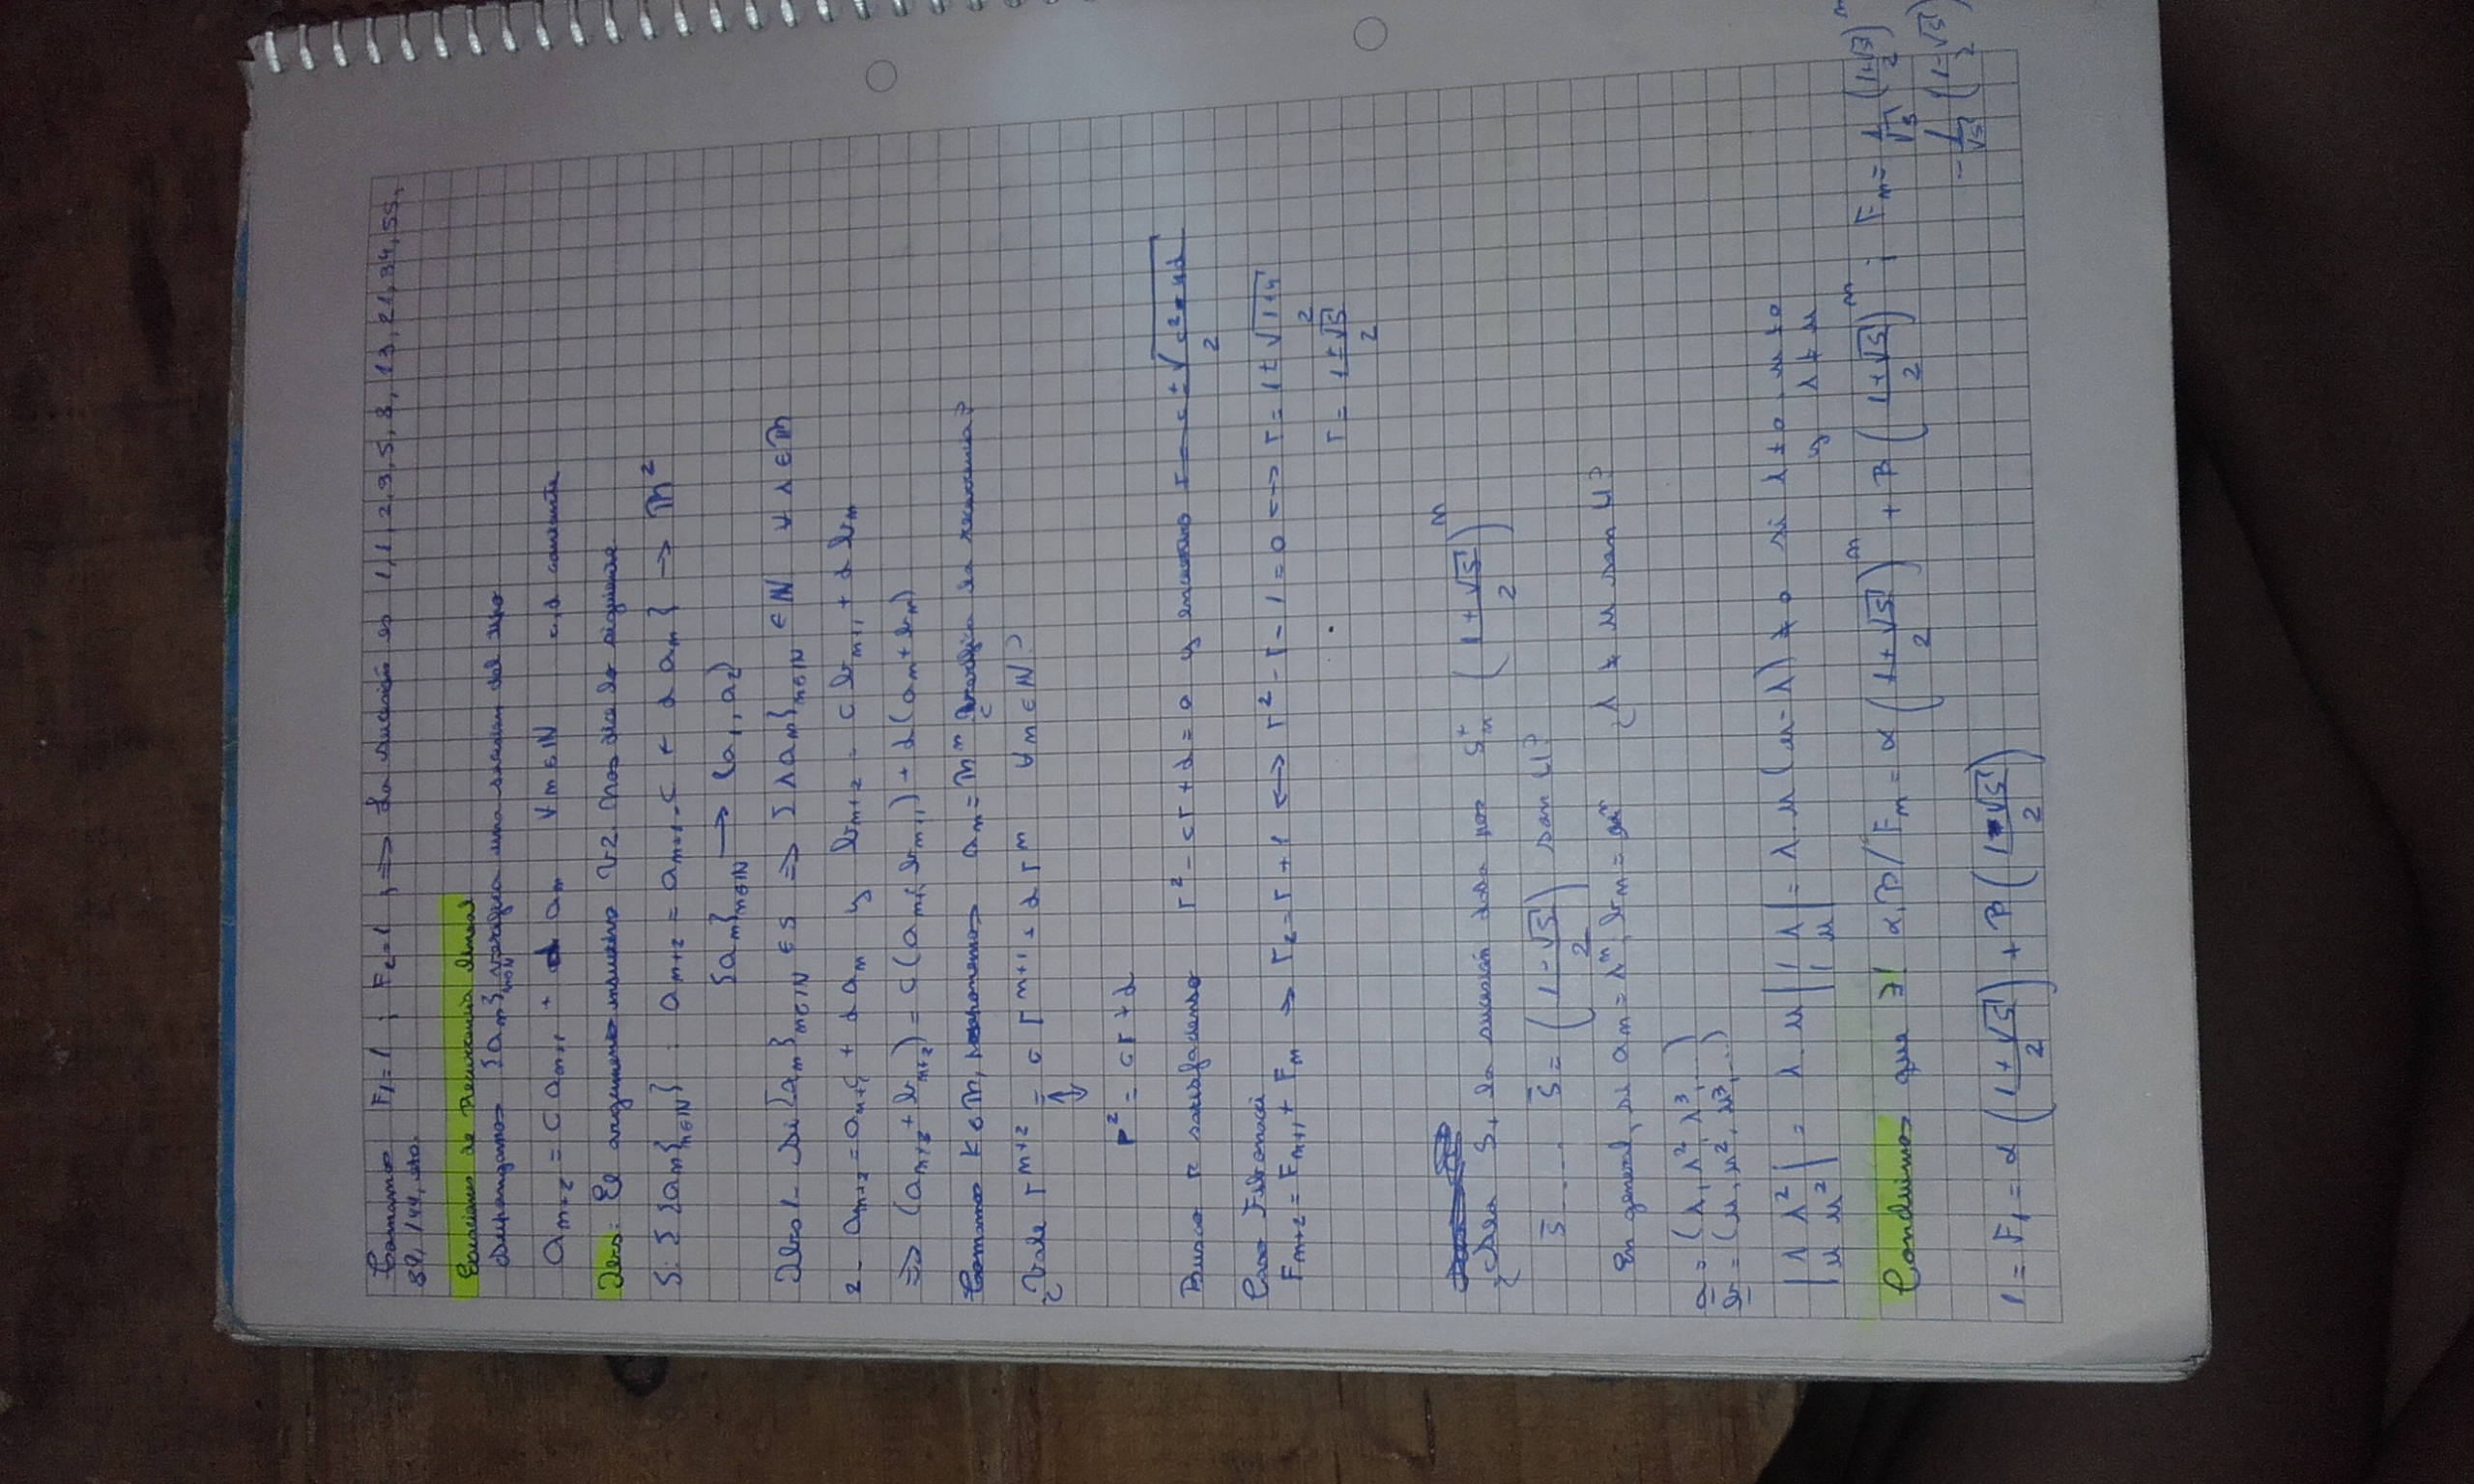 Tomamos F₁=1 ; F₂=1 , ⇒ La sucesión es 1,1,2,3,5,8,13,21,34,55,
89, 144, etc.
Ecuaciones de Recurrencia lineal
Supongamos {aₙ}ₙ∈ℕ verifica una ecuación del tipo
aₙ₊₂ = c aₙ₊₁ + d aₙ ∀ n ∈ ℕ c,d constante
Obs: El argumento inductivo V2. Nos dice lo siguiente
S: { {aₙ}ₙ∈ℕ} : aₙ₊₂ = aₙ₊₁ . c + d aₙ } → ℝ²
{aₙ}ₙ∈ℕ → (a₁, a₂)
Obs 1- Si {aₙ}ₙ∈ℕ ∈ S ⇒ {λaₙ}ₙ∈ℕ ∈ ℕ ∀ λ ∈ ℝ
2- aₙ₊₂ = aₙ₊₁c + d aₙ y bₙ₊₂ = c bₙ₊₁ + d bₙ
⇒ (aₙ₊₂ + bₙ₊₂) = c (aₙ₊₁ bₙ₊₁) + d (aₙ + bₙ)
Tomamos K ∈ ℝ, aₙ = ℝⁿ ¿verifica la recurrencia?
¿Vale rⁿ⁺² = c rⁿ⁺¹ + d rⁿ ∀ n ∈ ℕ?
↕
r² = cr + d
Busco r satisfaciendo r² - cr + d = 0 y encuentro r = c ± √(c² - 4d) / 2
Caso Fibonacci
Fₙ₊₂ = Fₙ₊₁ + Fₙ → r₂ = r + 1 ↔ r² - r - 1 = 0 ↔ r = 1 ± √(1+4) / 2
r = 1 ± √5 / 2
¿Sea S, la sucesión dada por S⁺ₙ ((1 + √5)/2)ⁿ
S̄ .... S̄ = ((1 - √5)/2) son LI?
En general, si aₙ = λⁿ, bₙ = μⁿ ¿λ ≠ μ son LI?
a = (λ, λ², λ³, ...)
b = (μ, μ², μ³, ...)
|λ λ²; μ μ²| = λ.μ |1 λ; 1 μ| = λ.μ (μ - λ) ≠ 0 si λ ≠ 0, μ ≠ 0
y λ ≠ μ
Concluimos que ∃! α, β / Fₙ = α ((1 + √5)/2)ⁿ + β ((1 + √5)/2)ⁿ ; Fₙ = 1/√5 ((1+√5)/2)ⁿ
- 1/√5 ((1-√5)/2)
1 = F₁ = α ((1 + √5)/2) + β ((1 - √5)/2)